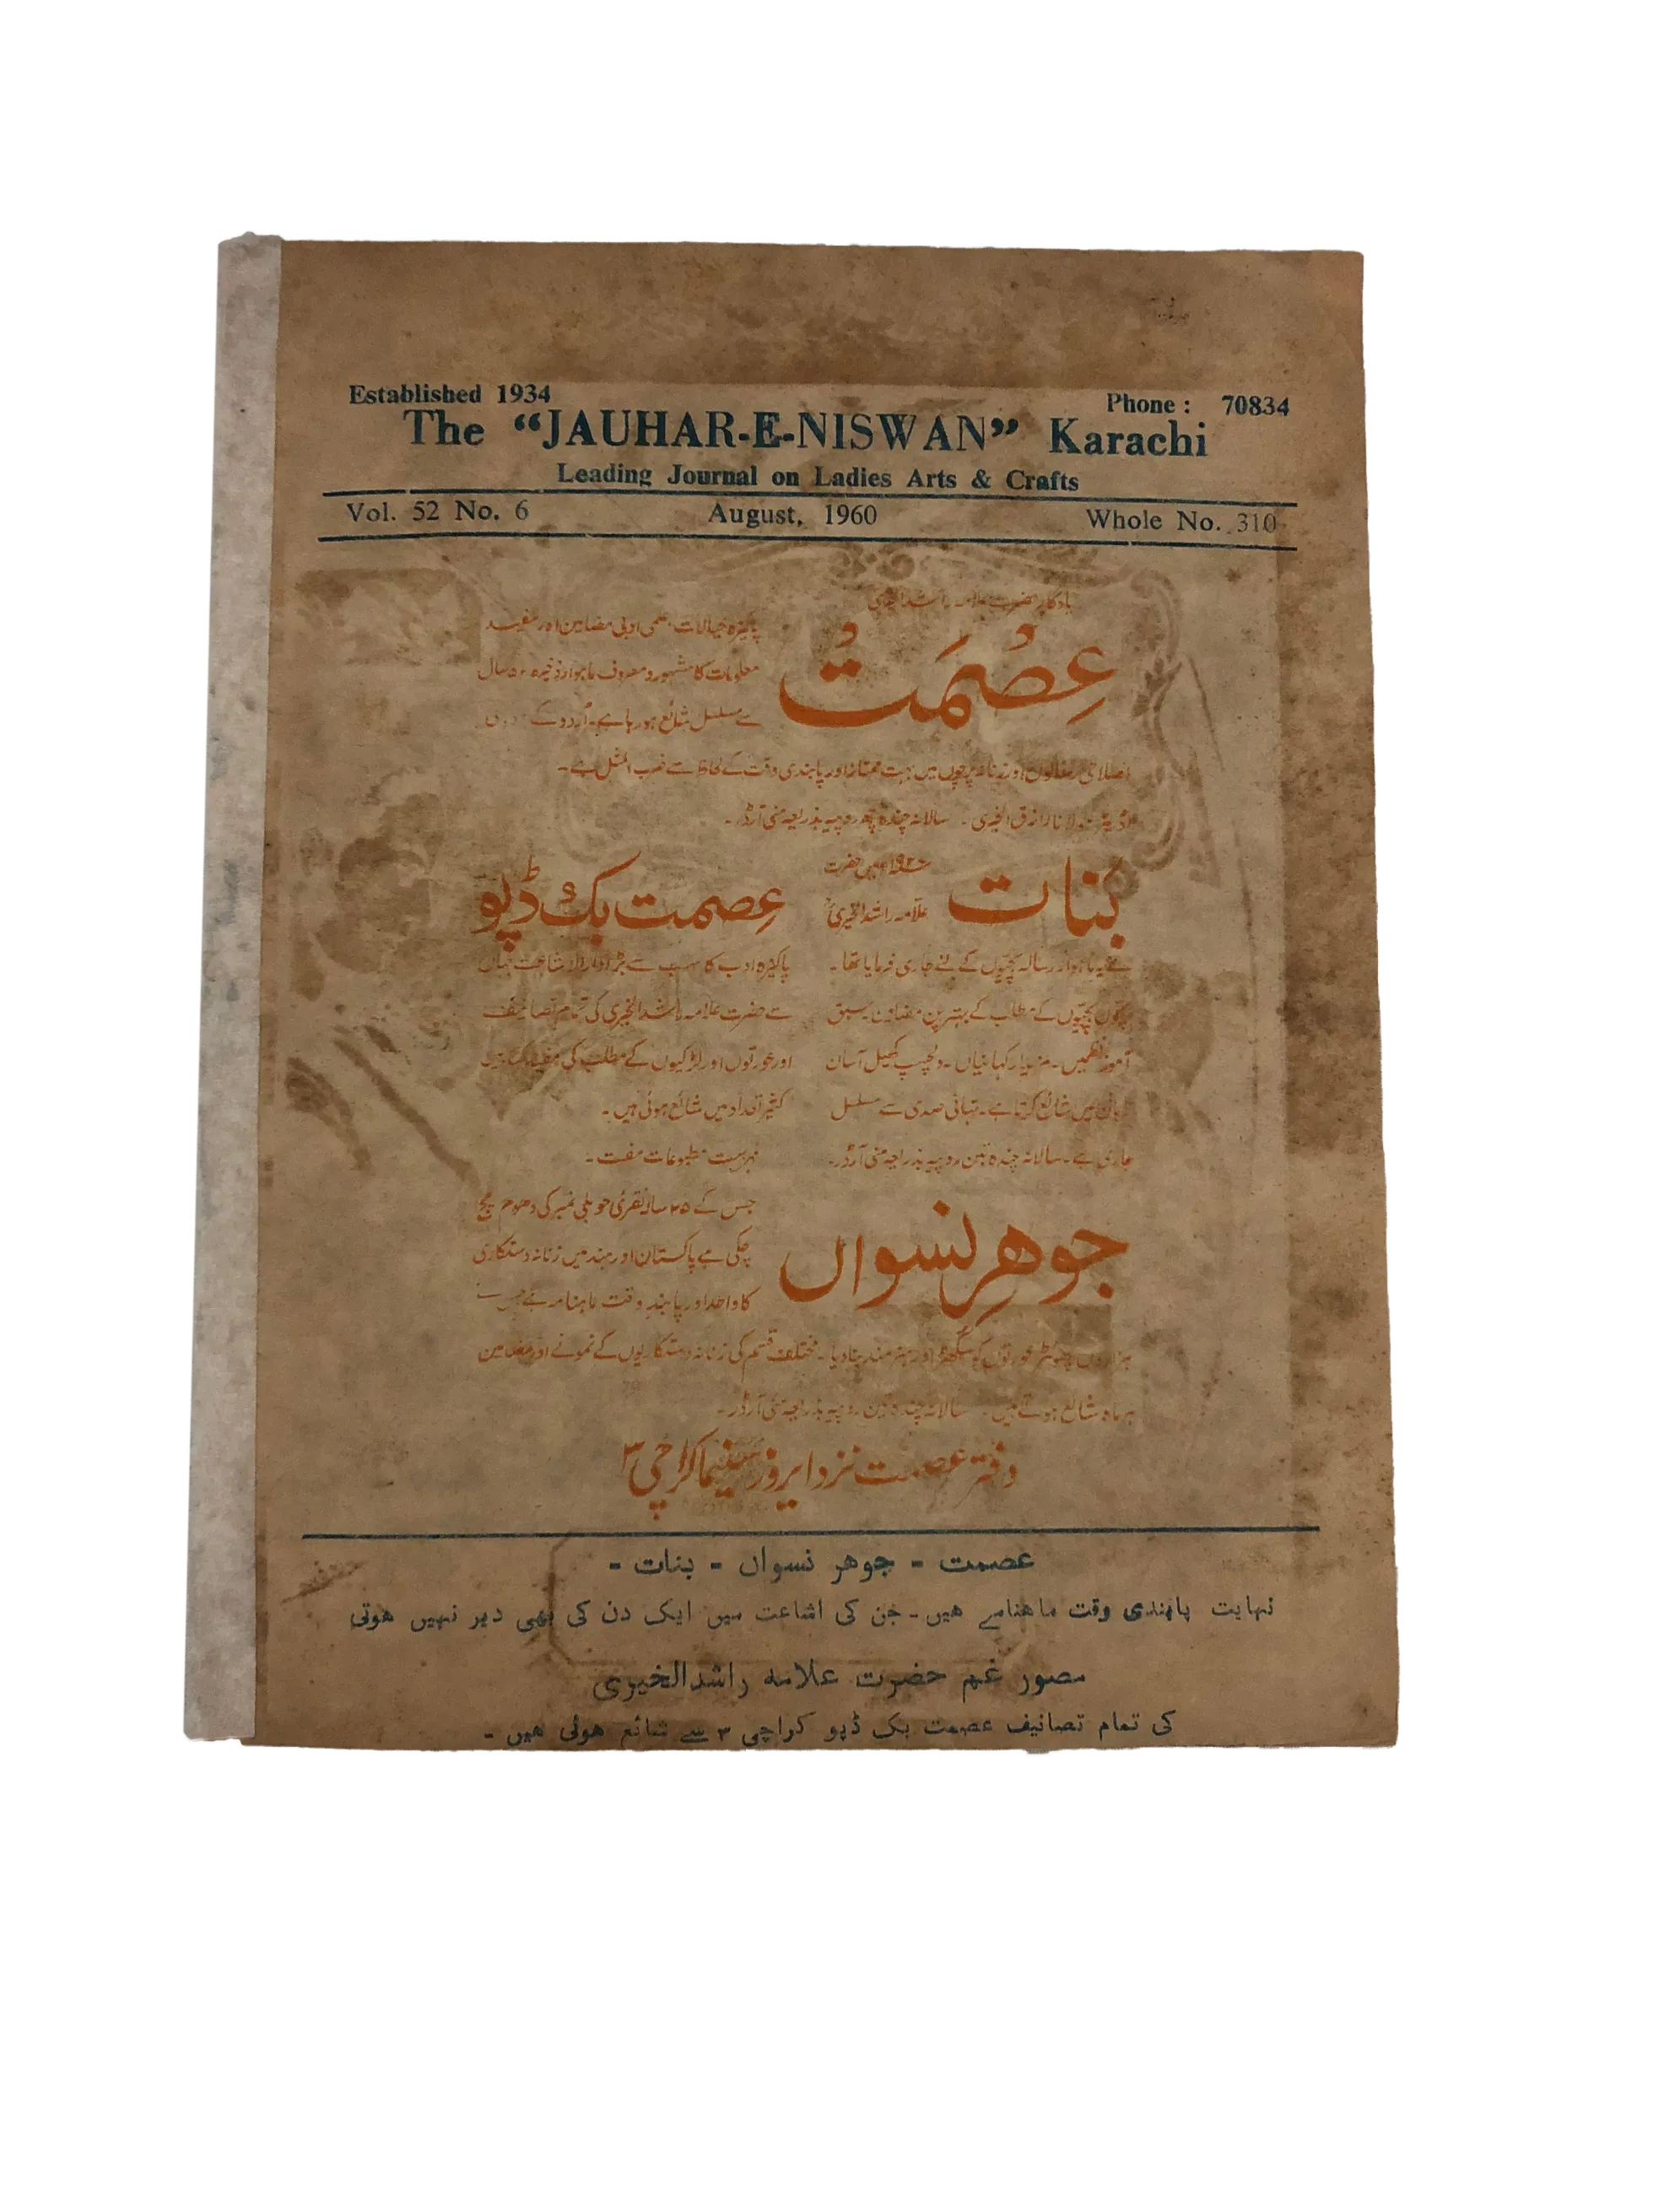 Established 1934
Phone : 70834
The “JAUHAR-E-NISWAN” Karachi
Leading Journal on Ladies Arts & Crafts
Vol. 52 No. 6 August, 1960 Whole No. 310
یادگار حضرت علامہ راشد الخیری
عِصْمَتْ
پاکیزہ خیالات، علمی ادبی مضامین اور مفید
معلومات کا مشہور و معروف ماہوار ذخیرہ ۵۰ سال
سے مسلسل شائع ہو رہا ہے۔ اُردو کے
اصلاحی رسالوں اور زنانہ پرچوں میں بہت ممتاز اور پابندی وقت کے لحاظ سے ضرب المثل ہے۔
اڈیٹر مولانا رازق الخیری۔ سالانہ چندہ چھ روپیہ بذریعہ منی آرڈر۔
بَنات
میں حضرت
علامہ راشد الخیریؒ
نے یہ ماہوار رسالہ بچیوں کے لئے جاری فرمایا تھا۔
بچوں بچیوں کے مطلب کے بہترین مضامین سبق
آموز نظمیں۔ مزیدار کہانیاں۔ دلچسپ کھیل آسان
زبان میں شائع کرتا ہے۔ تہائی صدی سے مسلسل
جاری ہے۔ سالانہ چندہ تین روپیہ بذریعہ منی آرڈر۔
عِصمت بکڈپو
پاکیزہ ادب کا سب سے بڑا دارالاشاعت جہاں
سے حضرت علامہ راشد الخیری کی تمام تصانیف
اور عورتوں اور لڑکیوں کے مطلب کی مفید کتابیں
کثیر تعداد میں شائع ہوئی ہیں۔
فہرست مطبوعات مفت۔
جوھرِ نسواں
جس کے ۲۵ سالہ نقرئی جوبلی نمبر کی دھوم مچ
چکی ہے پاکستان اور ہند میں زنانہ دستکاری
کا واحد اور پابندِ وقت ماہنامہ ہے جس نے
ہزاروں پھوہڑ عورتوں کو سگھڑ اور ہنرمند بنا دیا۔ مختلف قسم کی زنانہ دستکاریوں کے نمونے اور مضامین
ہر ماہ شائع ہوتے ہیں۔ سالانہ چندہ تین روپیہ بذریعہ منی آرڈر۔
دفتر عصمت نزد ایروز سنیما کراچی ۳
عصمت - جوھر نسواں - بنات -
نہایت پابندی وقت ماھنامے ھیں۔ جن کی اشاعت میں ایک دن کی بھی دیر نہیں ھوتی
مصور غم حضرت علامہ راشدالخیری
کی تمام تصانیف عصمت بک ڈپو کراچی ۳ سے شائع ھوئی ھیں -